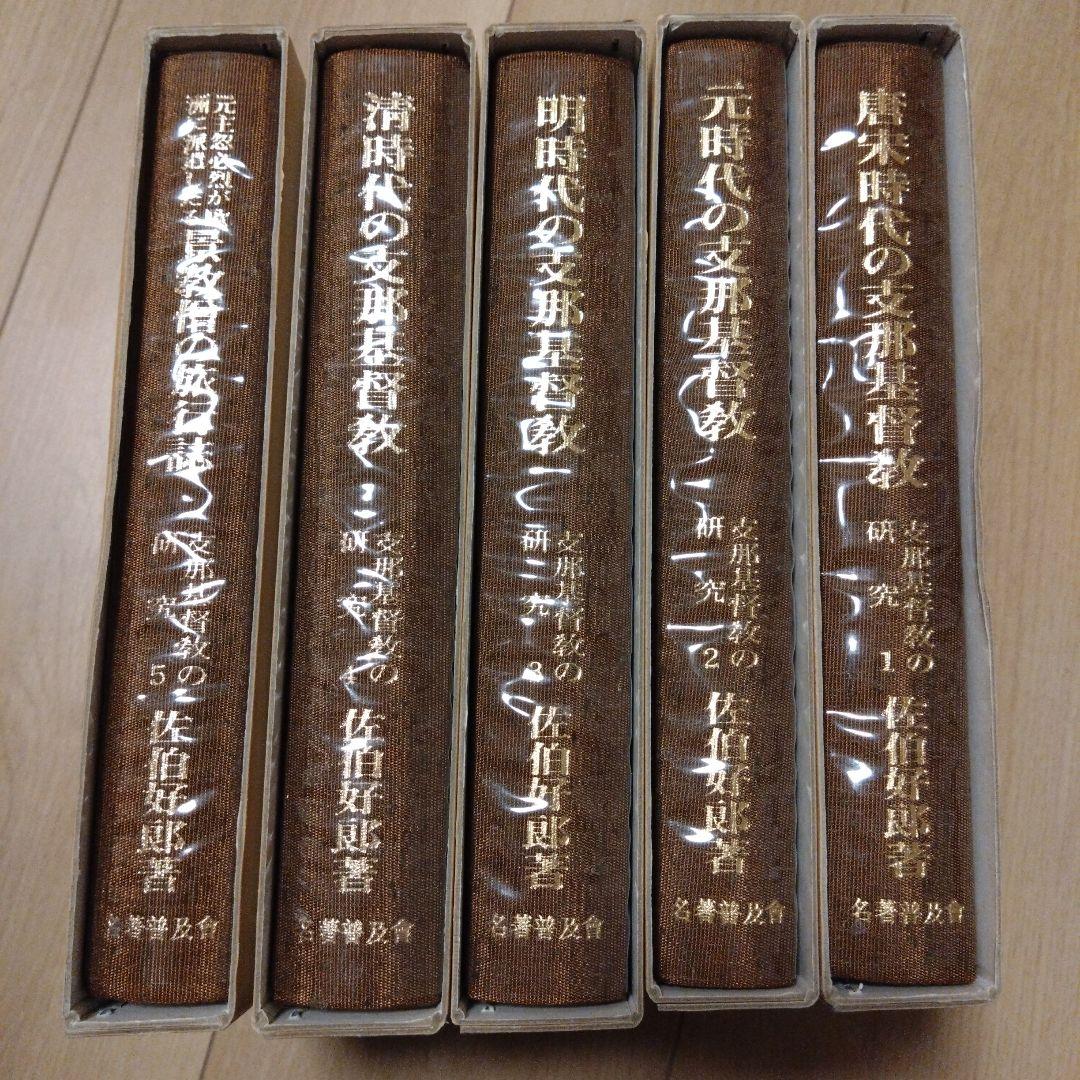 唐宋時代の支那基督教
支那基督教の
研究 1
佐伯好郎著
名著普及會
元時代の支那基督教
支那基督教の
研究 2
佐伯好郎著
名著普及會
明時代の支那基督教
支那基督教の
研究 3
佐伯好郎著
名著普及會
清時代の支那基督教
支那基督教の
研究 4
佐伯好郎著
名著普及會
元主忽必烈が欧
洲に派遣したる景教僧の旅行誌
支那基督教の
研究 5
佐伯好郎著
名著普及會